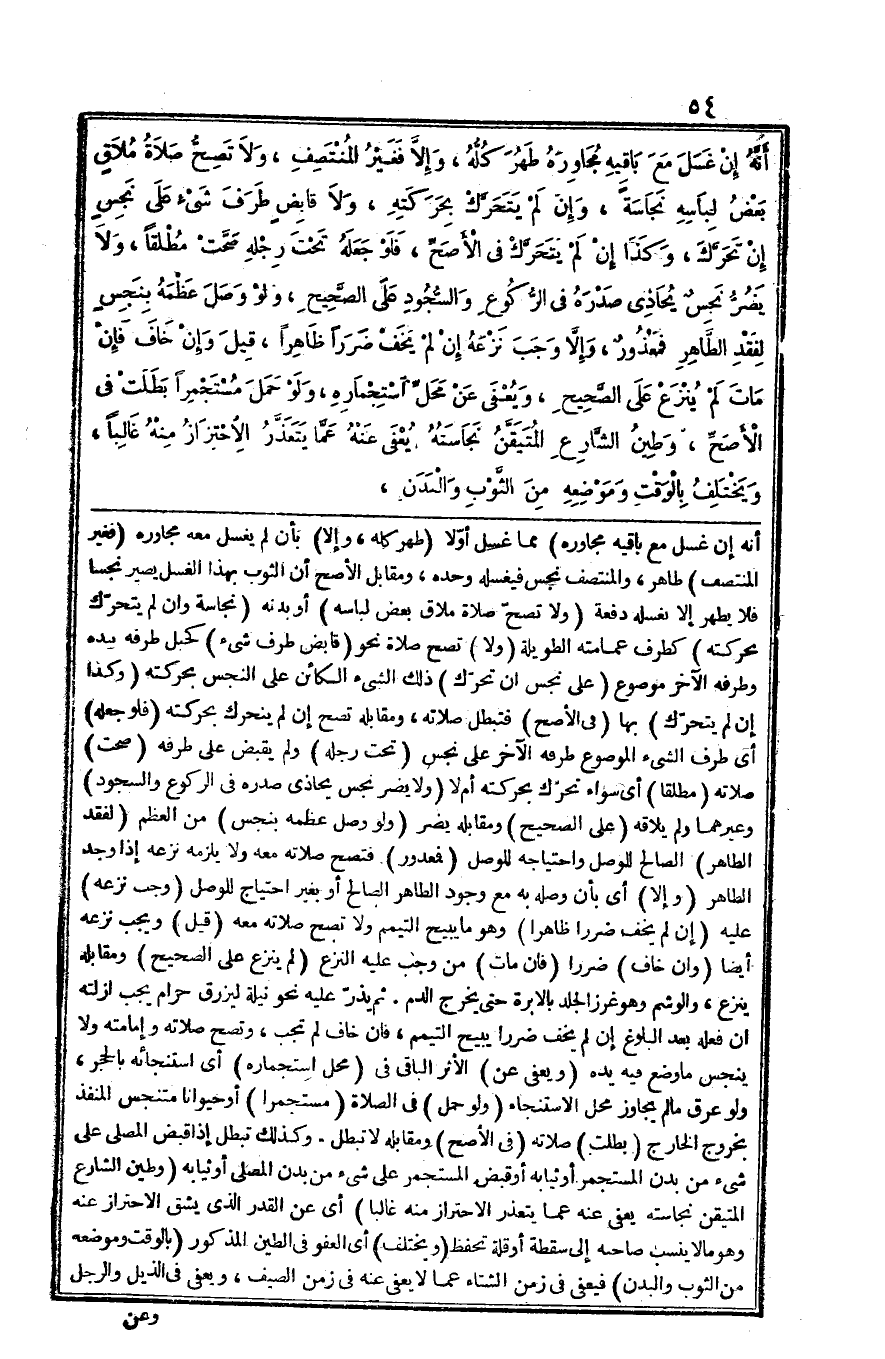 ٥٤
أَنَّهُ إِنْ غَسَلَ مَعَ بَاقِيهِ مُجَاوِرَهُ طَهُرَ كُلُّهُ ، وَإِلَّا فَغَيْرُ الْمُنْتَصِفِ ، وَلَا تَصِحُّ صَلَاةُ مُلَاقٍ
بَعْضُ لِبَاسِهِ نَجَاسَةً ، وَإِنْ لَمْ يَتَحَرَّكْ بِحَرَكَتِهِ ، وَلَا قَابِضٍ طَرَفَ شَىْءٍ عَلَى نَجِسٍ
إِنْ تَحَرَّكَ ، وَكَذَا إِنْ لَمْ يَتَحَرَّكْ فِى الْأَصَحِّ ، فَلَوْ جَعَلَهُ تَحْتَ رِجْلِهِ صَحَّتْ مُطْلَقاً ، وَلَا
يَضُرُّ نَجِسٌ يُحَاذِى صَدْرَهُ فِى الرُّكُوعِ وَالسُّجُودِ عَلَى الصَّحِيحِ ، وَلَوْ وَصَلَ عَظْمَهُ بِنَجِسٍ
لِفَقْدِ الطَّاهِرِ فَمَعْذُورٌ ، وَإِلَّا وَجَبَ نَزْعُهُ إِنْ لَمْ يَخَفْ ضَرَراً ظَاهِراً ، قِيلَ وَإِنْ خَافَ فَإِنْ
مَاتَ لَمْ يُنْزَعْ عَلَى الصَّحِيحِ ، وَيُعْفَى عَنْ مَحَلِّ اسْتِجْمَارِهِ ، وَلَوْ حَمَلَ مُسْتَجْمِراً بَطَلَتْ فِى
الْأَصَحِّ ، وَطِينُ الشَّارِعِ الْمُتَيَقَّنُ نَجَاسَتُهُ يُعْفَى عَنْهُ عَمَّا يَتَعَذَّرُ الِاحْتِرَازُ مِنْهُ غَالِباً ،
وَيَخْتَلِفُ بِالْوَقْتِ وَمَوْضِعِهِ مِنَ الثَّوْبِ وَالْبَدَنِ ،
أنه إن غسل مع باقيه مجاوره) مما غسل أوّلا (طهر كله ، وإلا) بأن لم يغسل معه مجاوره (فغير
المنتصف) طاهر ، والمنتصف نجس فيغسله وحده ، ومقابل الأصح أن الثوب بهذا الغسل يصير نجسا
فلا يطهر إلا بغسله دفعة (ولا تصحّ صلاة ملاق بعض لباسه) أو بدنه (نجاسة وان لم يتحرّك
بحركته) كطرف عمامته الطويلة (ولا) تصح صلاة نحو (قابض طرف شىء) كحبل طرفه بيده
وطرفه الآخر موضوع (على نجس ان تحرّك) ذلك الشىء الكائن على النجس بحركته (وكذا
إن لم يتحرّك) بها (فى الأصح) فتبطل صلاته ، ومقابله تصح إن لم يتحرك بحركته (فلو جعله)
أى طرف الشىء الموضوع طرفه الآخر على نجس (تحت رجله) ولم يقبض على طرفه (صحت)
صلاته (مطلقا) أى سواء تحرّك بحركته أم لا (ولا يضر نجس يحاذى صدره فى الركوع والسجود)
وغيرهما ولم يلاقه (على الصحيح) ومقابله يضر (ولو وصل عظمه بنجس) من العظم (لفقد
الطاهر) الصالح للوصل واحتياجه للوصل (فمعذور) فتصح صلاته معه ولا يلزمه نزعه إذا وجد
الطاهر (وإلا) أى بأن وصله به مع وجود الطاهر الصالح أو بغير احتياج للوصل (وجب نزعه)
عليه (إن لم يخف ضررا ظاهرا) وهو ما يبيح التيمم ولا تصح صلاته معه (قيل) ويجب نزعه
أيضا (وان خاف) ضررا (فان مات) من وجب عليه النزع (لم ينزع على الصحيح) ومقابله
ينزع ، والوشم وهو غرز الجلد بالابرة حتى يخرج الدم . ثم يذرّ عليه نحو نيلة ليزرق حرام يجب ازالته
ان فعله بعد البلوغ إن لم يخف ضررا يبيح التيمم ، فان خاف لم تجب ، وتصح صلاته وإمامته ولا
ينجس ما وضع فيه يده (ويعفى عن) الأثر الباقى فى (محل استجماره) أى استنجائه بالحجر ،
ولو عرق مالم يجاوز محل الاستنجاء (ولو حمل) فى الصلاة (مستجمرا) أو حيوانا متنجس المنفذ
بخروج الخارج (بطلت) صلاته (فى الأصح) ومقابله لا تبطل . وكذلك تبطل إذا قبض المصلى على
شىء من بدن المستجمر أو ثيابه أو قبض المستجمر على شىء من بدن المصلى أو ثيابه (وطين الشارع
المتيقن نجاسته يعفى عنه عما يتعذر الاحتراز منه غالبا) أى عن القدر الذى يشق الاحتراز عنه
وهو مالا ينسب صاحبه إلى سقطة أو قلة تحفظ (ويختلف) أى العفو فى الطين المذكور (بالوقت وموضعه
من الثوب والبدن) فيعفى فى زمن الشتاء عما لا يعفى عنه فى زمن الصيف ، ويعفى فى الذيل والرجل
وعن